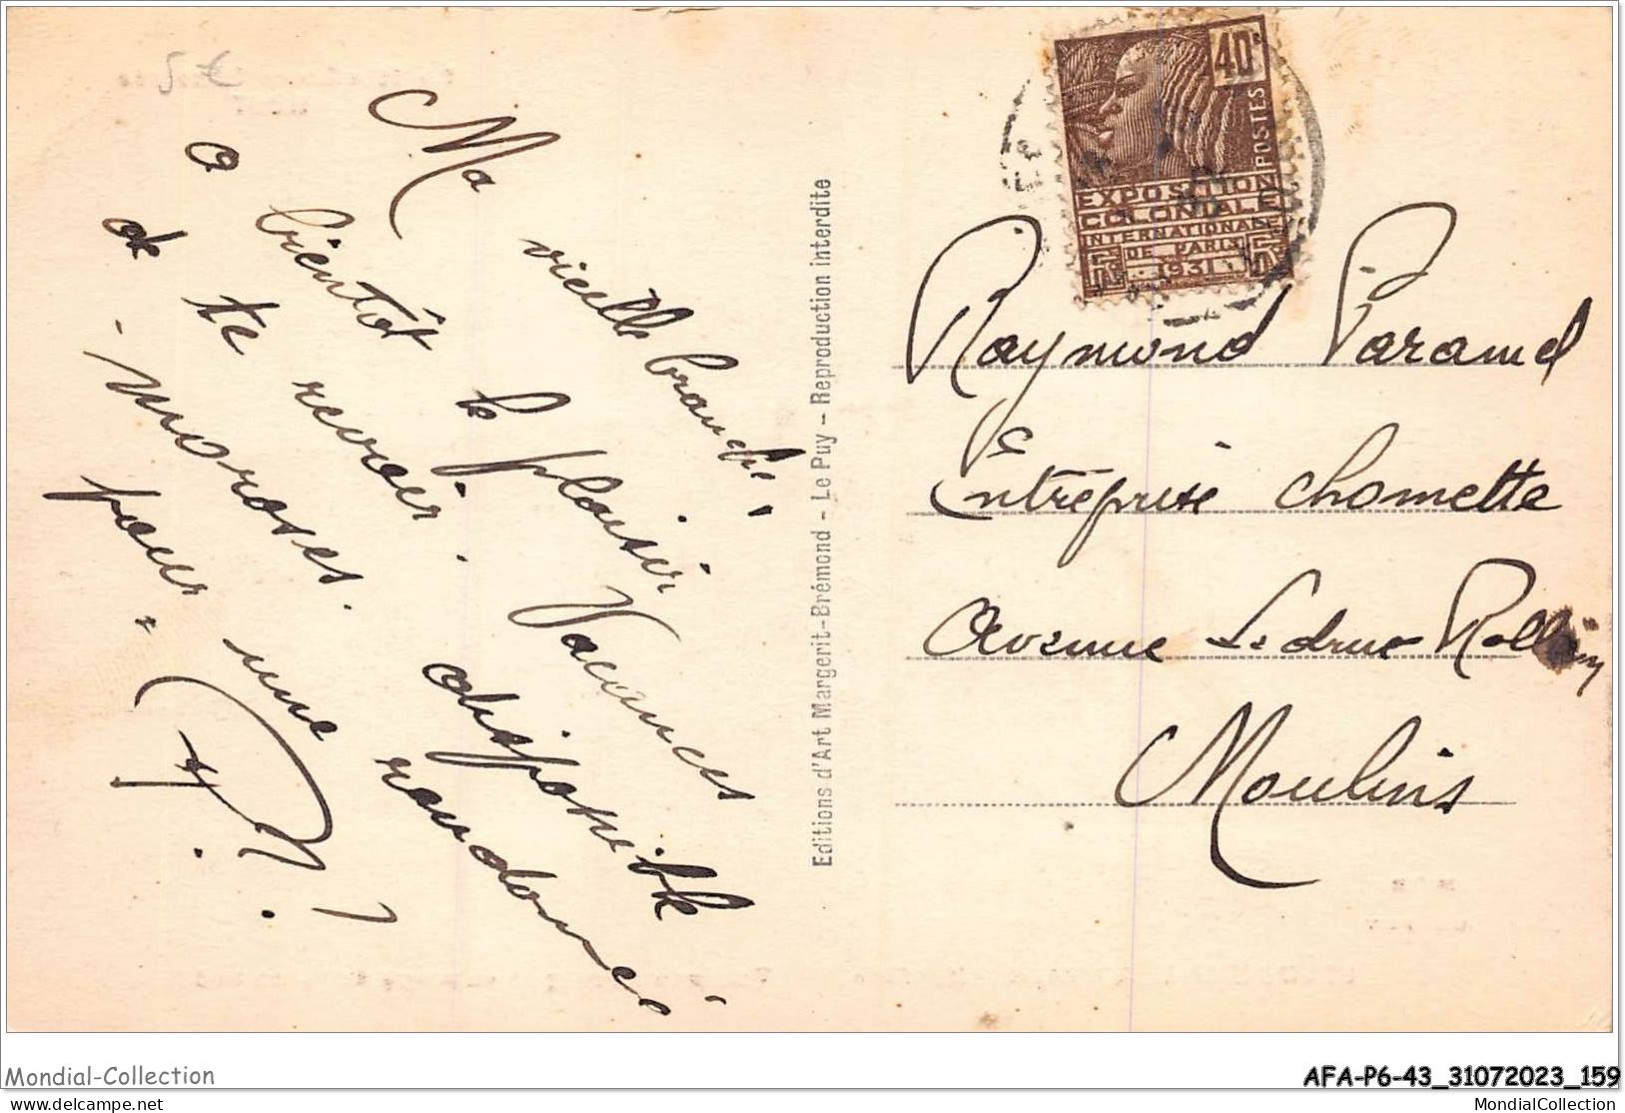 Ma vieille branche,
a bientôt le plaisir
de te revoir. Vacances
- moroses. disponible
pour une randonnée
Editions d'Art Margerit-Brémond - Le Puy - Reproduction interdite
40c
POSTES
EXPOSITION
COLONIALE
INTERNATIONALE
DE PARIS
1931
Raymond Paramel
Entreprise Chomette
Avenue Ledru Rollin
Moulins
Mondial-Collection
AFA-P6-43_31072023_159
delcampe.net
MondialCollection